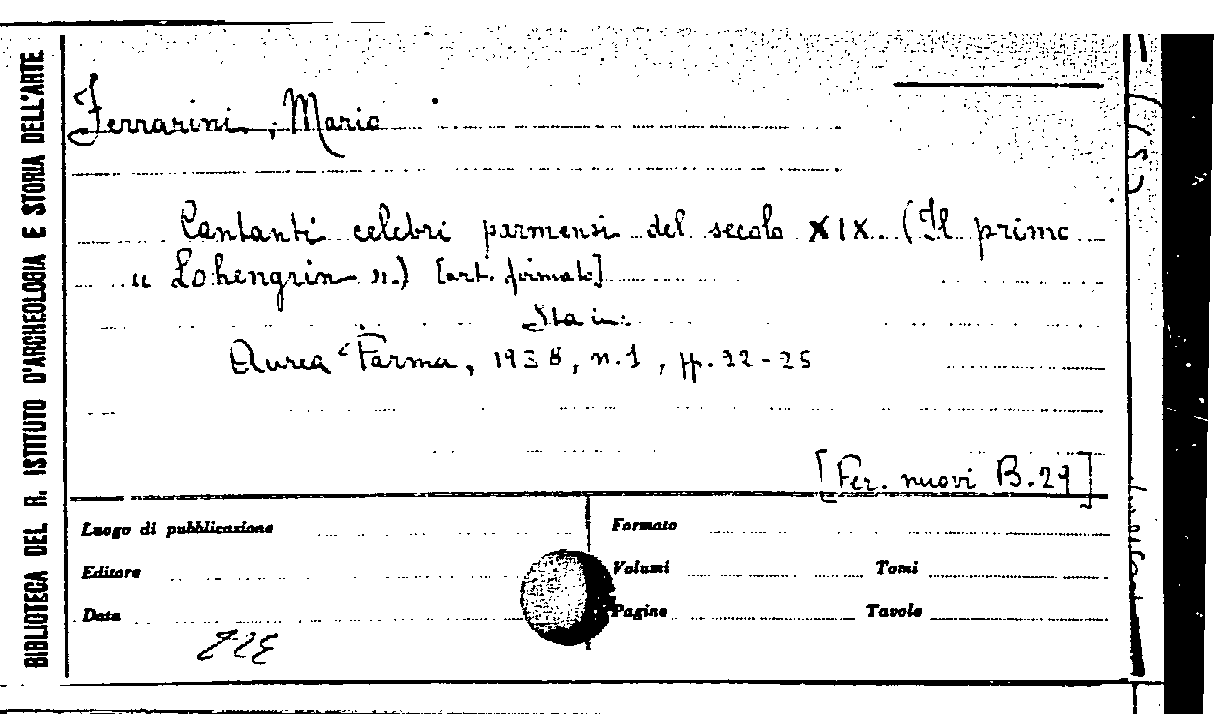 BIBLIOTECA DEL R. ISTITUTO D'ARCHEOLOGIA E STORIA DELL'ARTE
Ferrarini, Mario
Cantanti celebri parmensi del secolo XIX (Il primo
" Lohengrin ".) [art. firmato]
Sta in:
Aurea Parma, 1938, n.1, pp. 22-25
[Per. nuovi B.29]
Luogo di pubblicazione
Formato
Editore
Volumi
Tomi
Data
Pagine
Tavole